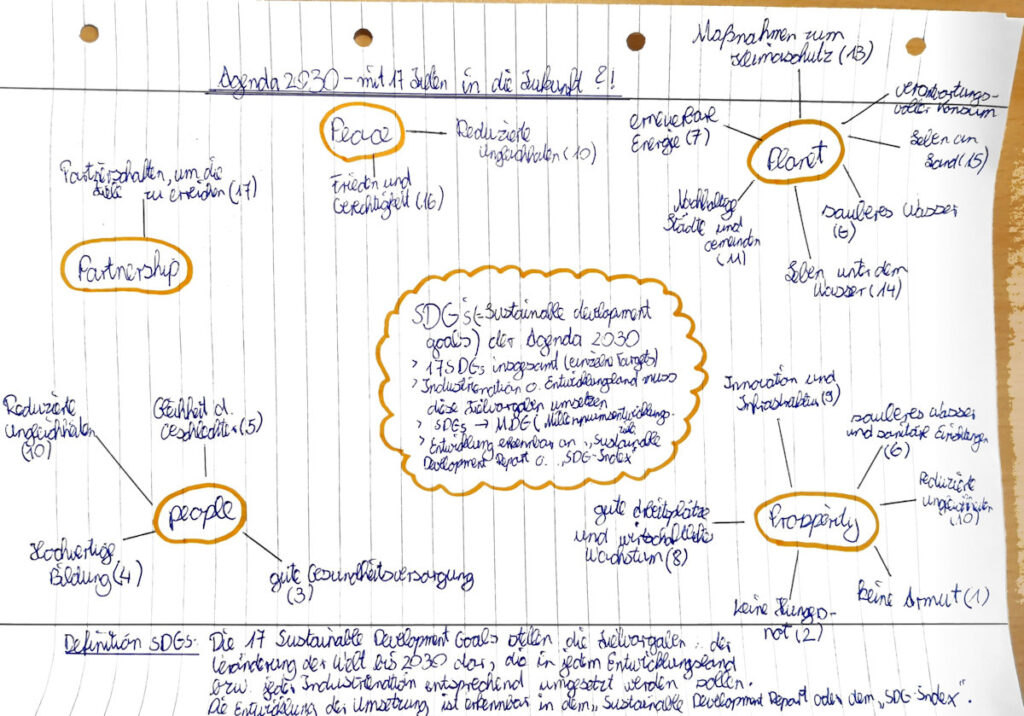 Agenda 2030 - mit 17 Zielen in die Zukunft ?!
Peace
Reduzierte
Ungleichheiten (10)
Frieden und
Gerechtigkeit (16)
Partnerschaften, um die
Ziele zu erreichen (17)
Partnership
Maßnahmen zum
Klimaschutz (13)
verantwortungs-
voller Konsum
erneuerbare
Energie (7)
Planet
Leben an
Land (15)
Nachhaltige
Städte und
Gemeinden
(11)
sauberes Wasser
(6)
Leben unter dem
Wasser (14)
SDG's (= Sustainable development
goals) der Agenda 2030
> 17 SDGs insgesamt (einzelne Targets)
> Industrienation o. Entwicklungsland muss
diese Zielvorgaben umsetzen
> SDGs → MDG (Millenniumsentwicklungs-
ziele
> Entwicklung erkennbar an „Sustainable
Development Report o. „SDG-Index"
Reduzierte
Ungleichheiten
(10)
Gleichheit d.
Geschlechter (5)
people
Hochwertige
Bildung (4)
gute Gesundheitsversorgung
(3)
Innovation und
Infrastruktur (9)
sauberes Wasser
und sanitäre Einrichtungen
(6)
Reduzierte
Ungleichheiten
(10)
Prosperity
gute Arbeitsplätze
und wirtschaftliches
Wachstum (8)
keine Hungers-
not (2)
keine Armut (1)
Definition SDGs: Die 17 Sustainable Development Goals stellen die Zielvorgaben der
Veränderung der Welt bis 2030 dar, die in jedem Entwicklungsland
bzw. jeder Industrienation entsprechend umgesetzt werden sollen.
Die Entwicklung der Umsetzung ist erkennbar in dem „Sustainable Development Report oder dem „SDG-Index".